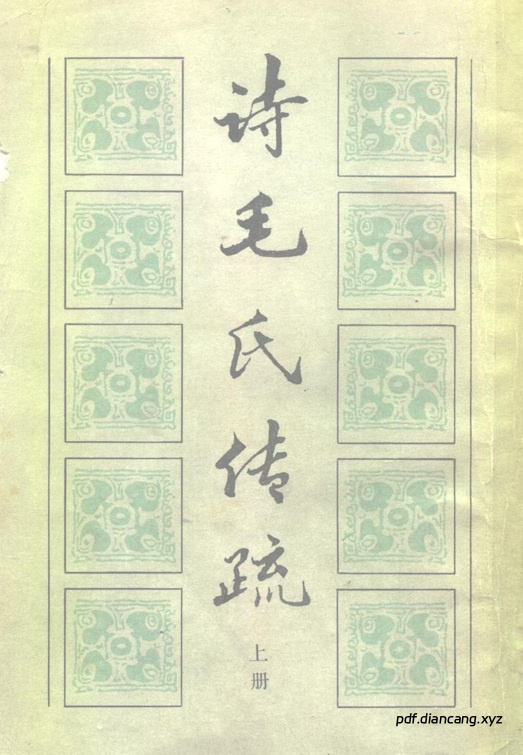 诗毛氏传疏
上册
pdf.diancang.xyz